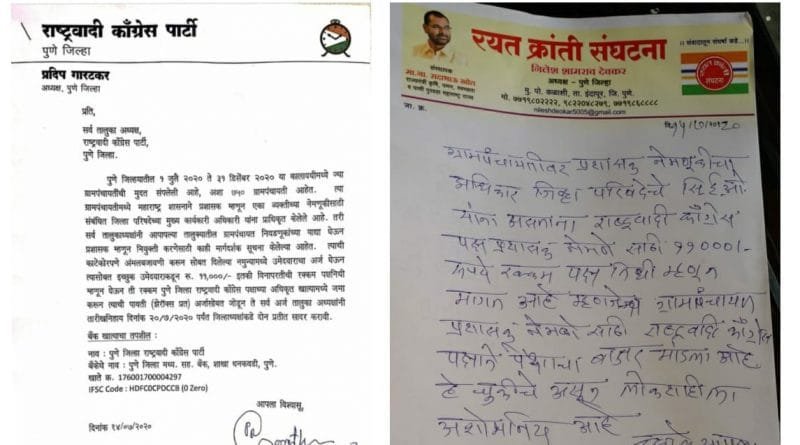 राष्ट्रवादी काँग्रेस पार्टी
पुणे जिल्हा
प्रदिप गारटकर
अध्यक्ष, पुणे जिल्हा
प्रति,
सर्व तालुका अध्यक्ष,
राष्ट्रवादी काँग्रेस पार्टी,
पुणे जिल्हा.
पुणे जिल्हयातील १ जुलै २०२० ते ३१ डिसेंबर २०२० या कालावधीमध्ये ज्या
ग्रामपंचायतींची मुदत संपलेली आहे, अशा ७५० ग्रामपंचायती आहेत. त्या
ग्रामपंचायतीमध्ये महाराष्ट्र शासनाने प्रशासक म्हणून एका व्यक्तीच्या नेमणूकीसाठी
संबंधित जिल्हा परिषदेच्या मुख्य कार्यकारी अधिकारी यांना प्राधिकृत केलेले आहे. तरी
सर्व तालुकाध्यक्षांनी आपापल्या तालुक्यातील ग्रामपंचायत निवडणूकांच्या याद्या घेऊन
प्रशासक म्हणून नियुक्ती करणेसाठी काही मार्गदर्शक सूचना केलेल्या आहेत. त्याची
काटेकोरपणे अंमलबजावणी करून सोबत दिलेल्या नमुन्यामध्ये उमेदवाराचा अर्ज घेऊन
त्यासोबत इच्छुक उमेदवाराकडून रू. ११,०००/- इतकी विनापरतीची रक्कम पक्षनिधी
म्हणून घेऊन ती रक्कम पुणे जिल्हा राष्ट्रवादी काँग्रेस पक्षाच्या अधिकृत खात्यामध्ये जमा
करून त्याची पावती (झेरॉक्स प्रत) अर्जासोबत जोडून ते सर्व अर्ज तालुका अध्यक्षांनी
तारीखनिहाय दिनांक २०/७/२०२० पर्यंत जिल्हाध्यक्षांकडे दोन प्रतीत सादर करावी.
बँक खात्याचा तपशील :
नाव : पुणे जिल्हा राष्ट्रवादी काँग्रेस पार्टी
बँकेचे नाव : पुणे जिल्हा मध्य. सह. बँक, शाखा धनकवडी, पुणे.
खाते क्र. 176001700004297
IFSC Code : HDFC0CPDCCB (0 Zero)
आपला विश्वासू,
दिनांक १४/०७/२०२०
रयत क्रांती संघटना
संस्थापक
मा.ना. सदाभाऊ खोत
निलेश शामराव देवकर
अध्यक्ष - पुणे जिल्हा
मु. पो. कळाशी, ता. इंदापूर, जि. पुणे.
मो. ७७१९८०२२२२, ९८२२०४८२५९, ७७१९८६८८८८
nileshdeokar5005@gmail.com
जा. क्र.
ग्रामपंचायतीवर प्रशासक नेमणूकीचा
अधिकार जिल्हा परिषदेचे सिईओ
यांना असताना राष्ट्रवादी काँग्रेस
पक्ष प्रशासक नेमणे साठी ११०००/-
रूपये रक्कम पक्ष निधी म्हणून
मागत आहे म्हणजेच ग्रामपंचायत
प्रशासक नेमणे साठी राष्ट्रवादी काँग्रेस
पक्षाने पैशाचा बाजार मांडला आहे
हे चुकीचे असून लोकशाहीला
अशोभनिय आहे